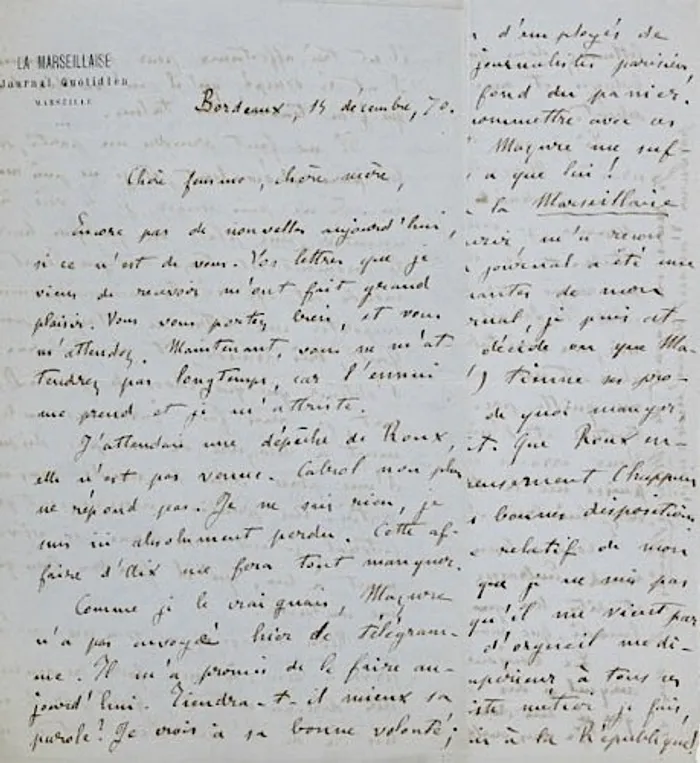 LA MARSEILLAISE
Journal Quotidien
MARSEILLE
Bordeaux, 15 décembre, 70.
Chère femme, chère mère,
Encore pas de nouvelles aujourd'hui,
si ce n'est de vous. Vos lettres que je
viens de recevoir m'ont fait grand
plaisir. Vous vous portez bien, et vous
m'attendez. Maintenant, vous ne m'at-
tendrez pas longtemps, car l'ennui
me prend et je m'attriste.
J'attendais une dépêche de Roux,
elle n'est pas venue. Cabrol non plus
ne répond pas. Je ne sais rien, je
suis ici absolument perdu. Cette af-
faire d'Aix me fera tout manquer.
Comme je le craignais, Masure
n'a pas envoyé hier de télégram-
me. Il m'a promis de le faire au-
jourd'hui. Tiendra-t-il mieux sa
parole? Je crois à sa bonne volonté;
d'employés de
journalistes parisiens,
fond du panier.
commettre avec ces
Masure me suf-
a que lui!
la Marseillaise
m'a
journal a été une
de mon
rnal, je puis at-
décide ou que Ma-
) tienne sa pro-
de quoi manger,
t. Que Roux en-
bonnes dispositions
relatif de mon
que je ne suis pas
qu'il me vient par
d'orgueil me di-
supérieur à tous ces
métier je fais,
à la République!